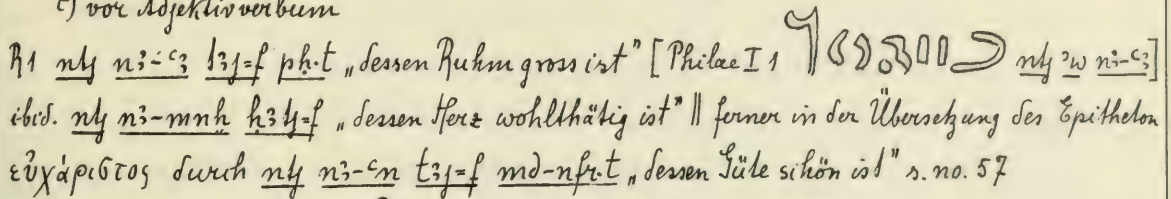 c) vor Adjektivverbum
R1 ntj nꜣ-ꜥꜣ tꜣj=f pḥ.t „dessen Ruhm gross ist" [Philae I 1 ntj ꜣw nꜣ-ꜥꜣ]
ibid. ntj nꜣ-mnḫ ḥꜣtj=f „dessen Herz wohlthätig ist" || ferner in der Übersetzung des Epitheton
εὐχάριστος durch ntj nꜣ-ꜥn tꜣj=f md-nfr.t „dessen Güte schön ist" s. no. 57